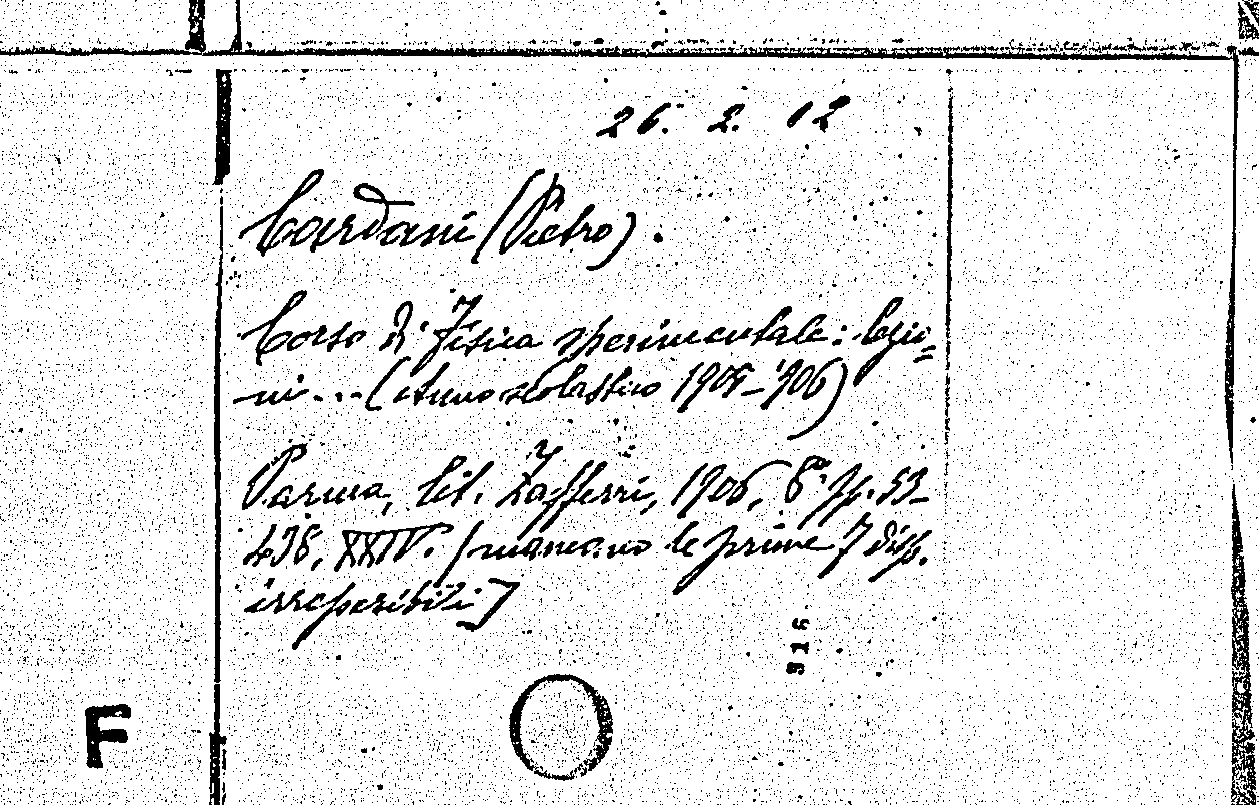 26. 2. 12
Cardani (Pietro).
Corso di Fisica sperimentale: lezio=
ni... (Anno scolastico 1905-906)
Parma, lit. Zafferri, 1906, 8º pp. 53-
438, XXIV. [mancano le prime 7 disp.
irreperibili]
316
F